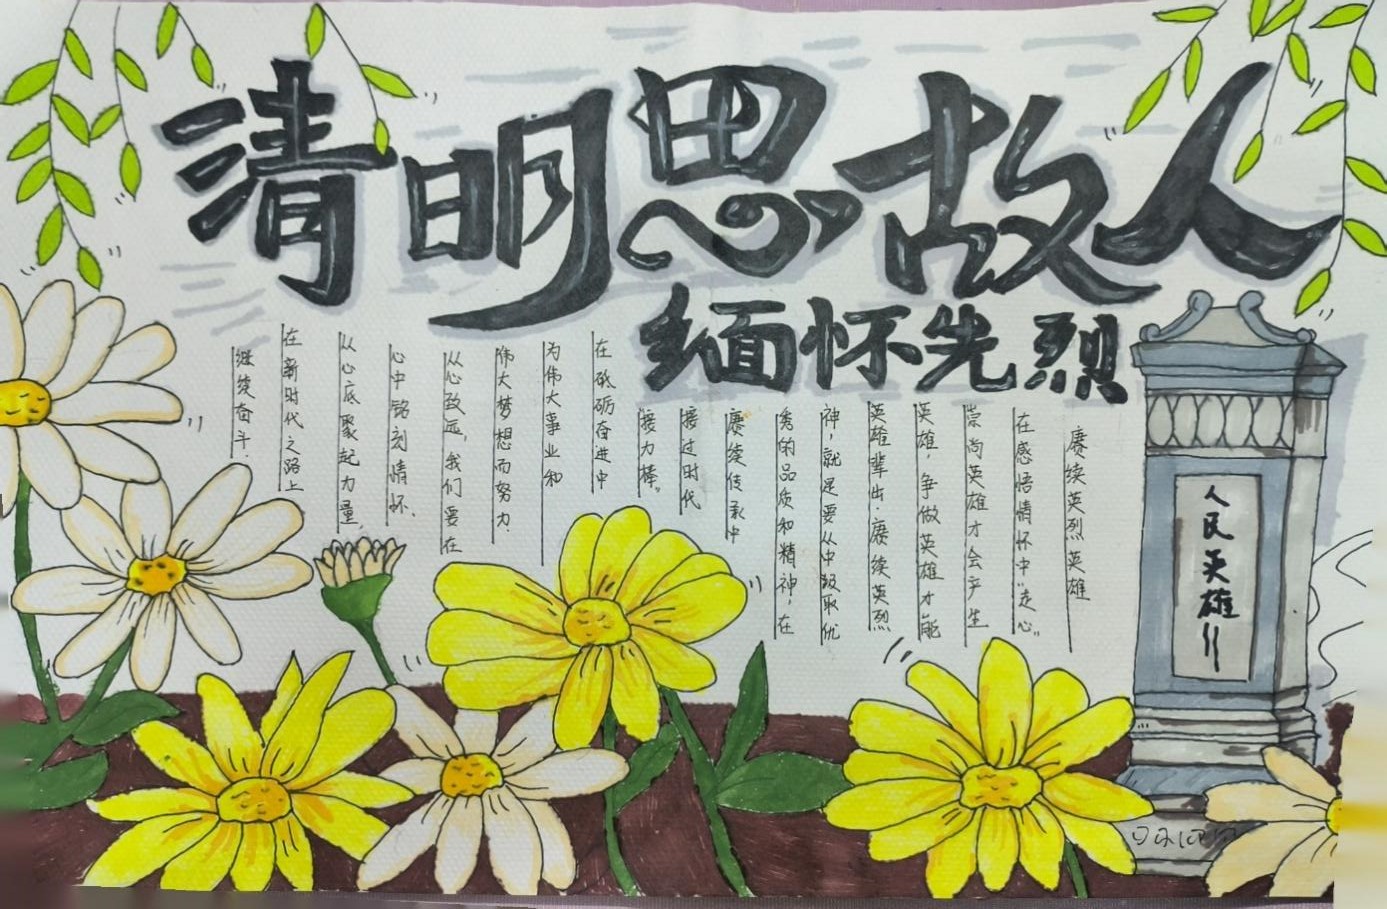 清明思故人
缅怀先烈
赓续英烈英雄
在感悟情怀中“走心”
崇尚英雄才会产生
英雄,争做英雄才能
英雄辈出.赓续英烈
神,就是要从中汲取优
秀的品质和精神,在
赓续传承中
接过时代
接力棒。
在砥砺奋进中
为伟大事业和
伟大梦想而努力.
从心致远,我们要在
心中铭刻情怀.
从心底聚起力量
在新时代之路上
继续奋斗.
人民英雄